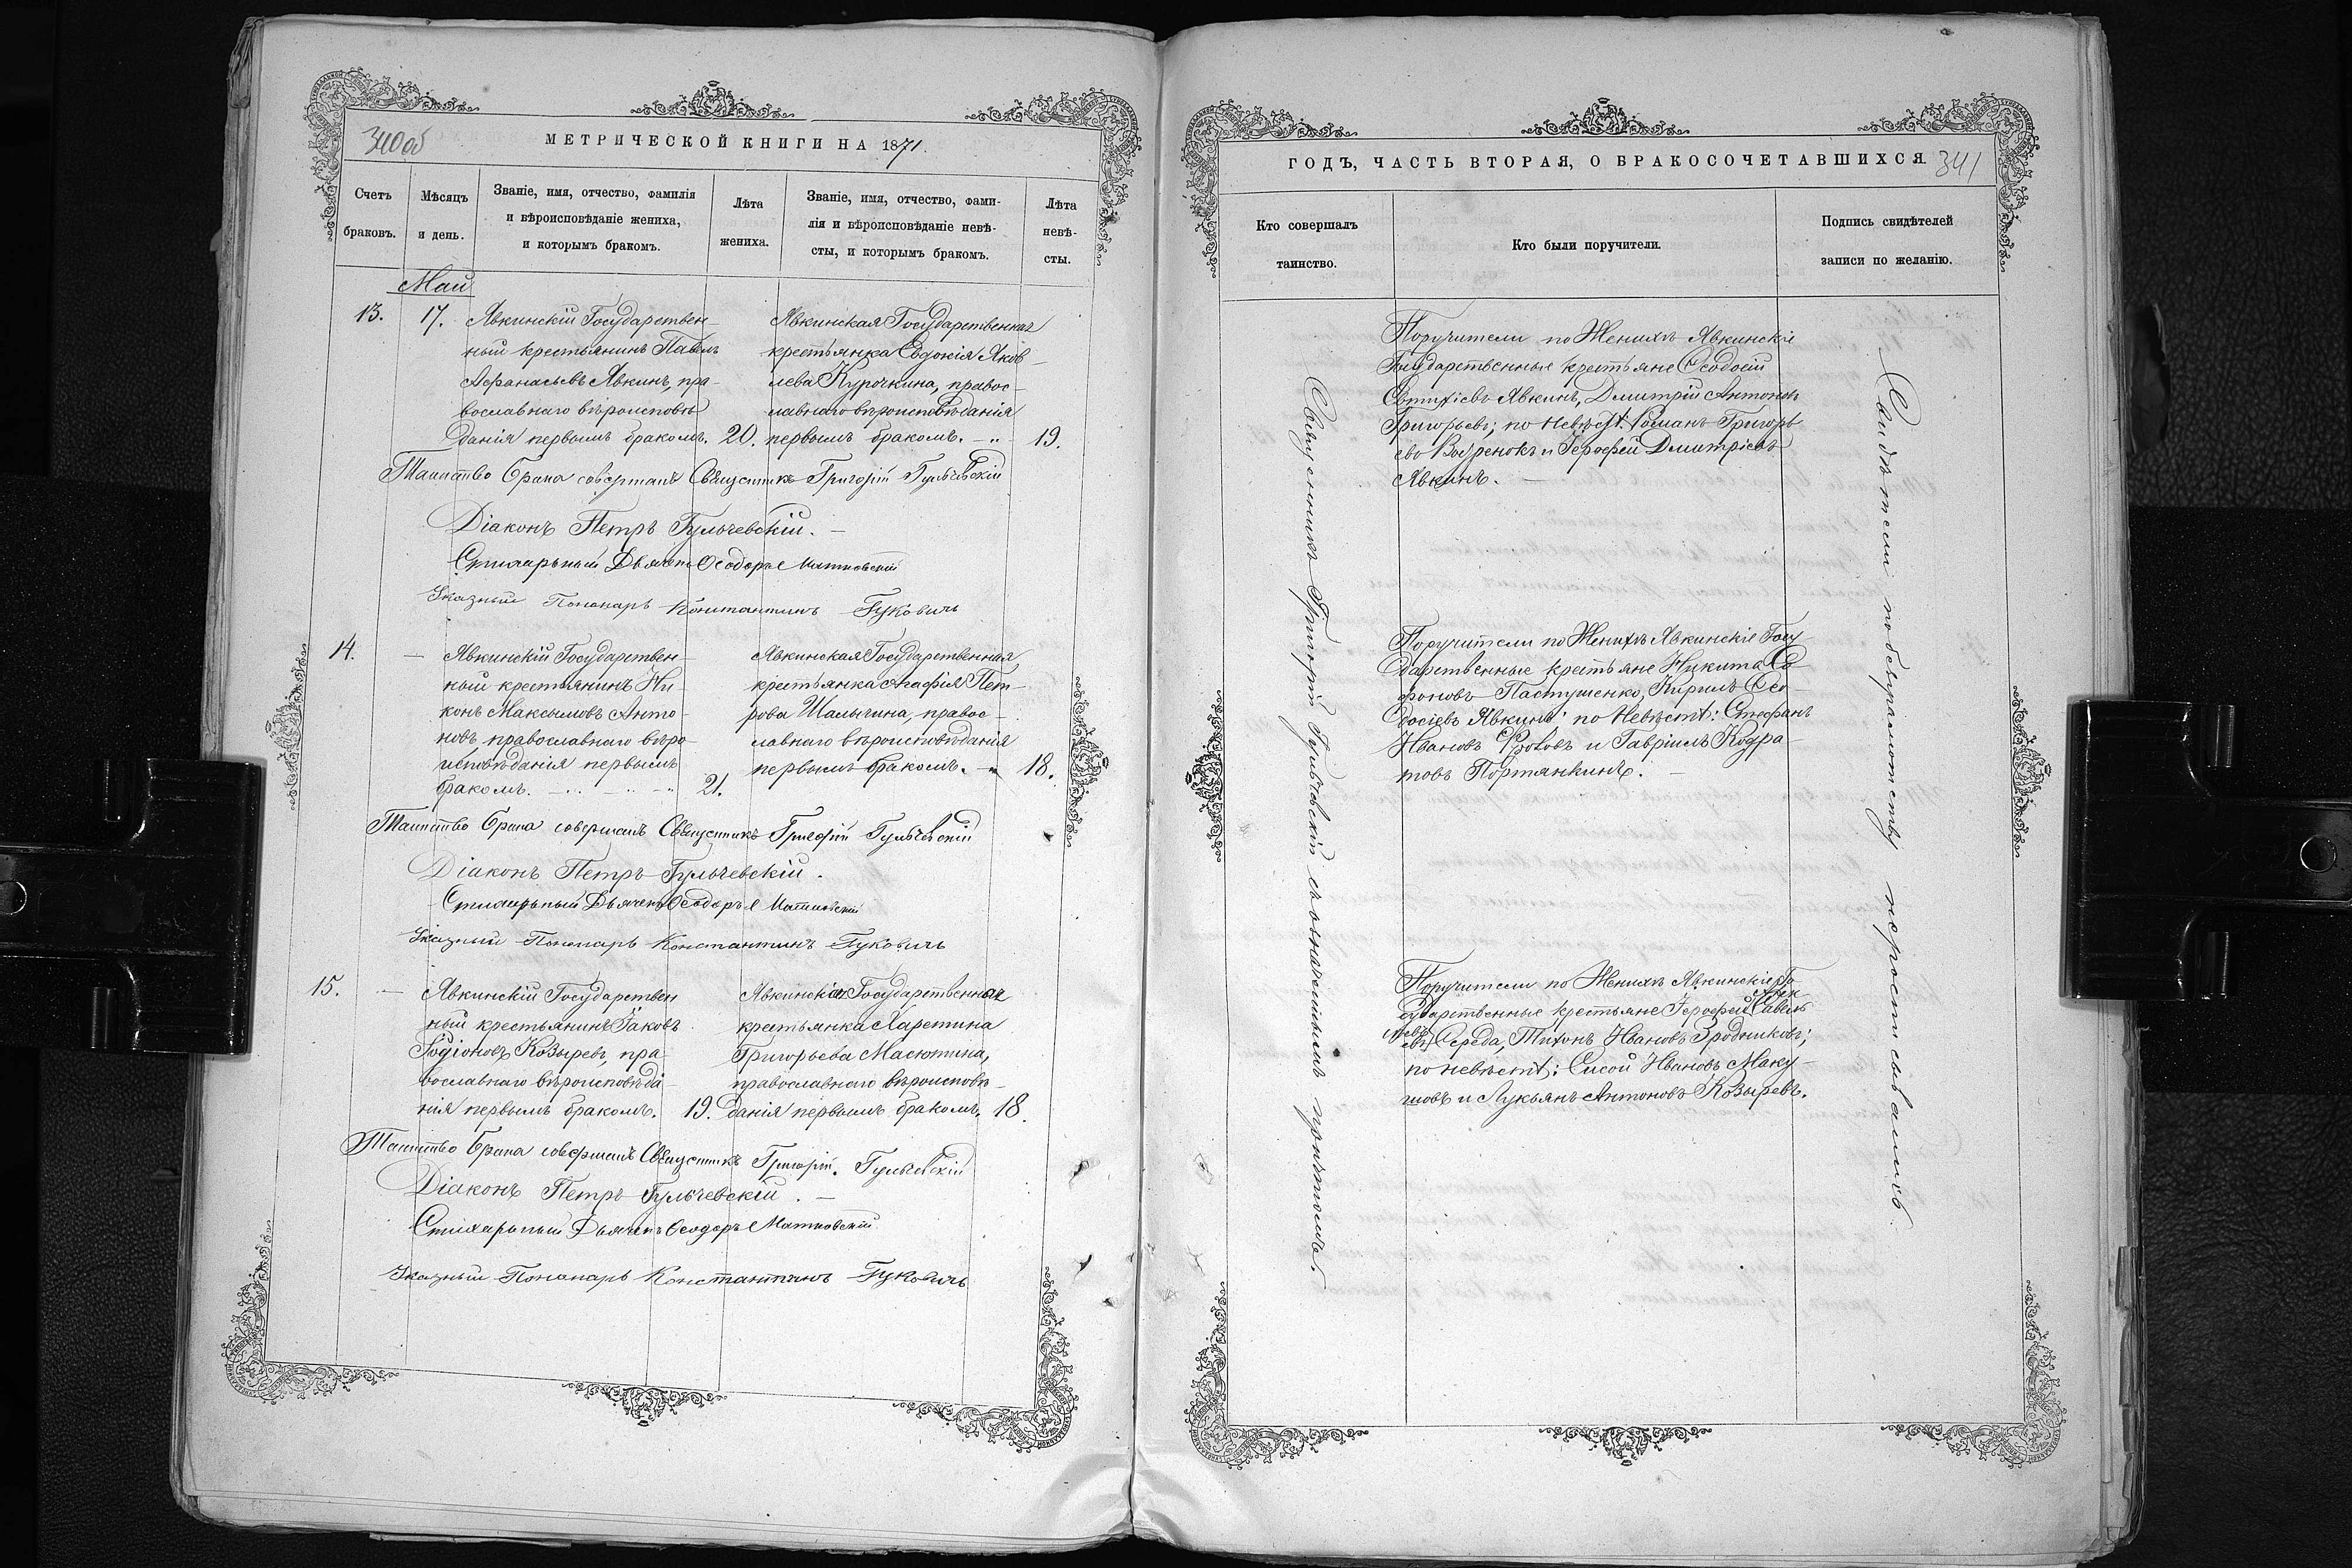 340об
МЕТРИЧЕСКОЙ КНИГИ НА 1871.
Счетъ браковъ.
Мѣсяцъ и день.
Званіе, имя, отчество, фамилія
и вѣроисповѣданіе жениха,
и которымъ бракомъ.
Лѣта
жениха.
Званіе, имя, отчество, фами-
лія и вѣроисповѣданіе невѣ-
сты, и которымъ бракомъ.
Лѣта
невѣ-
сты.
Май
13.
17.
Явкинскій Государствен-
ный крестьянинъ Павелъ
Афанасьевъ Явкинъ, пра-
вославнаго вѣроисповѣ-
данія первымъ бракомъ.
20.
Явкинская Государственная
крестьянка Евдокія Яков-
лева Курочкина, правос-
лавнаго вѣроисповѣданія
первымъ бракомъ.
19.
Таинство Брака совершалъ Священникъ Григорій Гульчевскій
Діаконъ Петръ Гульчевскій.
Стихарный Дьячекъ Ѳеодоръ Матковскій
Указный Пономарь Константинъ Гуковичъ
14.
—
Явкинскій Государствен-
ный крестьянинъ Ни-
конъ Максымовъ Анто-
новъ, православнаго вѣро-
исповѣданія первымъ
бракомъ.
21.
Явкинская Государственная
крестьянка Агафія Пет-
рова Шалыгина, правос-
лавнаго вѣроисповѣданія
первымъ бракомъ.
18.
Таинство Брака совершалъ Священникъ Григорій Гульчевскій
Діаконъ Петръ Гульчевскій.
Стихарный Дьячекъ Ѳеодоръ Матковскій
Указный Пономарь Константинъ Гуковичъ
15.
—
Явкинскій Государствен
ный крестьянинъ Іаковъ
Родіоновъ Козыревъ, пра-
вославнаго вѣроисповѣда-
нія первымъ бракомъ.
19.
Явкинская Государственная
крестьянка Харетина
Григорьева Масютина,
православнаго вѣроисповѣ-
данія первымъ бракомъ.
18.
Таинство Брака совершалъ Священникъ Григорій Гульчевскій
Діаконъ Петръ Гульчевскій.
Стихарный Дьячекъ Ѳеодоръ Матковскій
Указный Пономарь Константинъ Гуковичъ
ГОДЪ, ЧАСТЬ ВТОРАЯ, О БРАКОСОЧЕТАВШИХСЯ.
341
Кто совершалъ
таинство.
Кто были поручители.
Подпись свидѣтелей
записи по желанію.
Поручители по Женихѣ Явкинскіе
Государственные крестьяне Ѳеодосій
Евтихіевъ Явкинъ, Дмитрій Антоновъ
Григорьевъ; по Невѣстѣ: Романъ Григорь
евъ и Герофей Дмитріевъ
Явкинъ.
Поручители по Женихѣ Явкинскіе Госу-
дарственные крестьяне Никита Са-
фоновъ Пастушенко, Кирилъ Ѳео-
досіевъ Явкинъ; по Невѣстѣ: Стефанъ
Ивановъ Фроловъ и Гавріилъ Кодра-
товъ Портянкинъ.
Поручители по Женихѣ Явкинскіе Го-
сударственные крестьяне Герофей
Середа, Тихонъ Ивановъ Зродниковъ;
по невѣстѣ: Сисой Ивановъ Маку-
шовъ и Лукьянъ Антоновъ Козыревъ.
Священникъ Григорій Гульчевскій съ означеннымъ причтомъ.
Свидѣтели по безграмотству неростысывались.